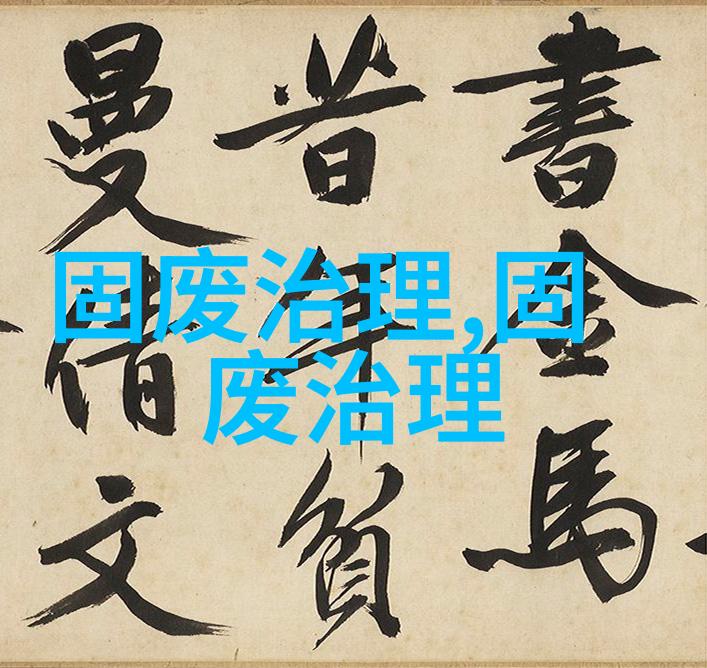 書金馬
昔年貧
曼倩文
固废治理,固
废治理